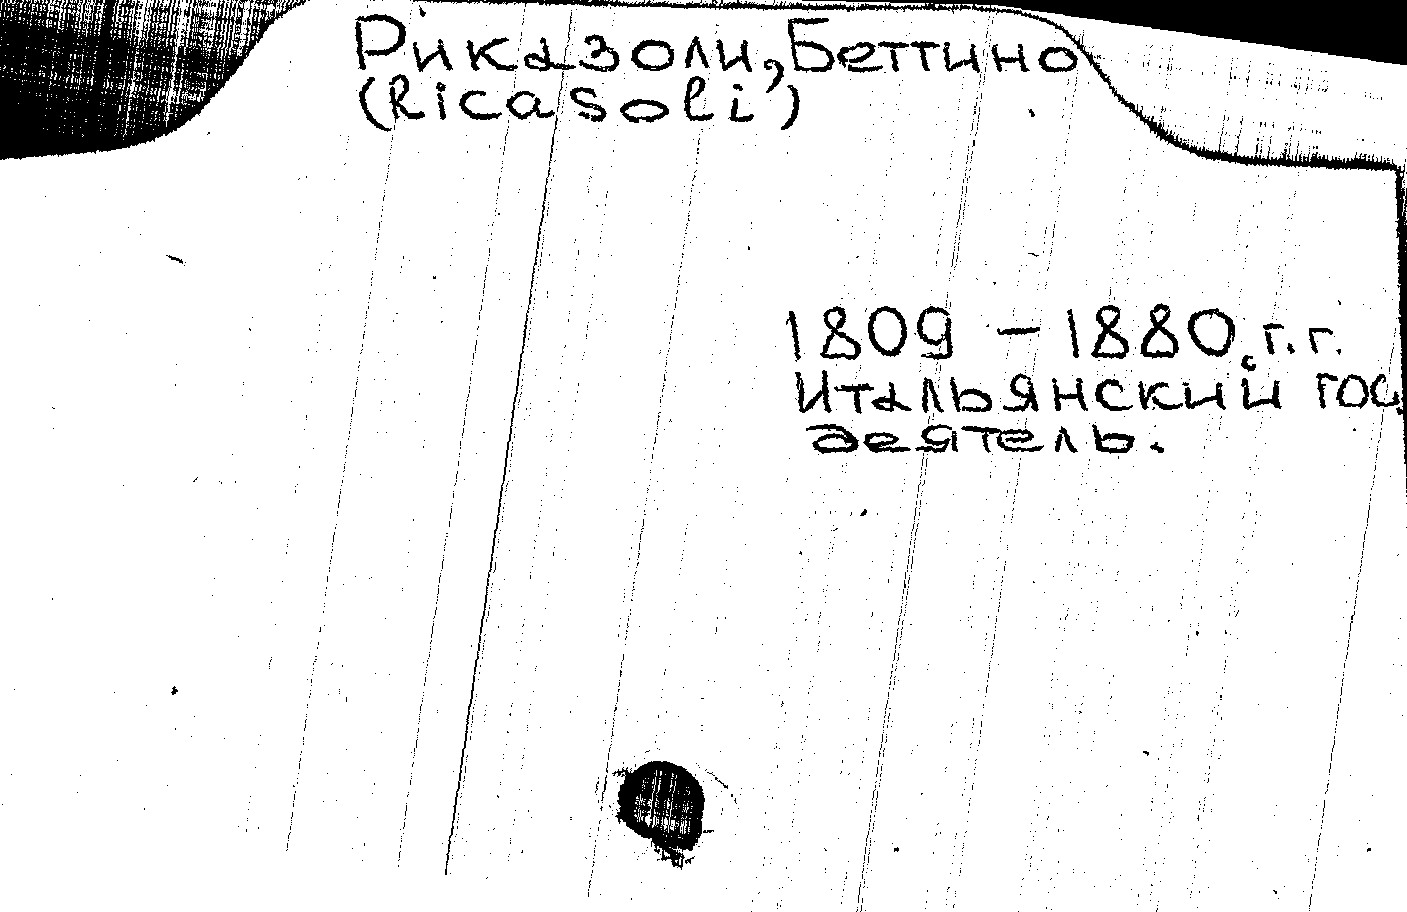 Риказоли, Беттино
(Ricasoli)
1809 – 1880 г.г.
Итальянский гос.
деятель.